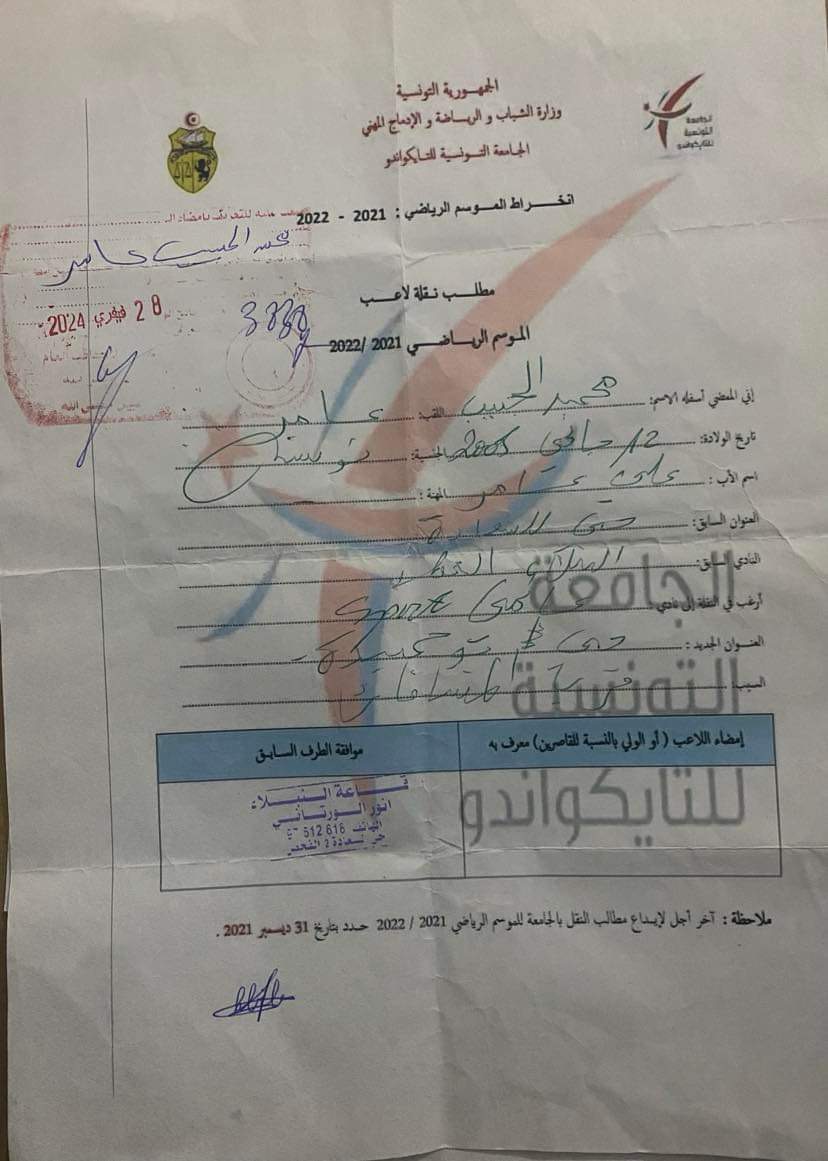 الجمهورية التونسية
وزارة الشباب و الرياضة و الإدماج المهني
الجامعة التونسية للتايكواندو
الجامعة
التونسية
للتايكواندو
انخراط الموسم الرياضي : 2021 - 2022
محمد الحبيب عامر
28 فيفري 2024
مطلب نقلة لاعب
الموسم الرياضي 2021 /2022
إني الممضي أسفله الاسم: محمد الحبيب اللقب: عامر
تاريخ الولادة: 12 جانفي 2005 الجنسية: تونسية
اسم الأب : علي عامر المهنة :
العنوان السابق: حي السعادة
النادي السابق:
أرغب في النقلة إلى نادي: Sport
العنوان الجديد : حي بوحميدة
السبب: قرب المسافة
إمضاء اللاعب ( أو الولي بالنسبة للقاصرين) معرف به
موافقة الطرف السابق
قاعة النبلاء
انور الورتاني
الهاتف 97 512 616
حي سعادة 2 الفحص
الجامعة
التونسية
للتايكواندو
ملاحظة : آخر أجل لإيداع مطالب النقل بالجامعة للموسم الرياضي 2021 / 2022 حدد بتاريخ 31 ديسمبر 2021 .